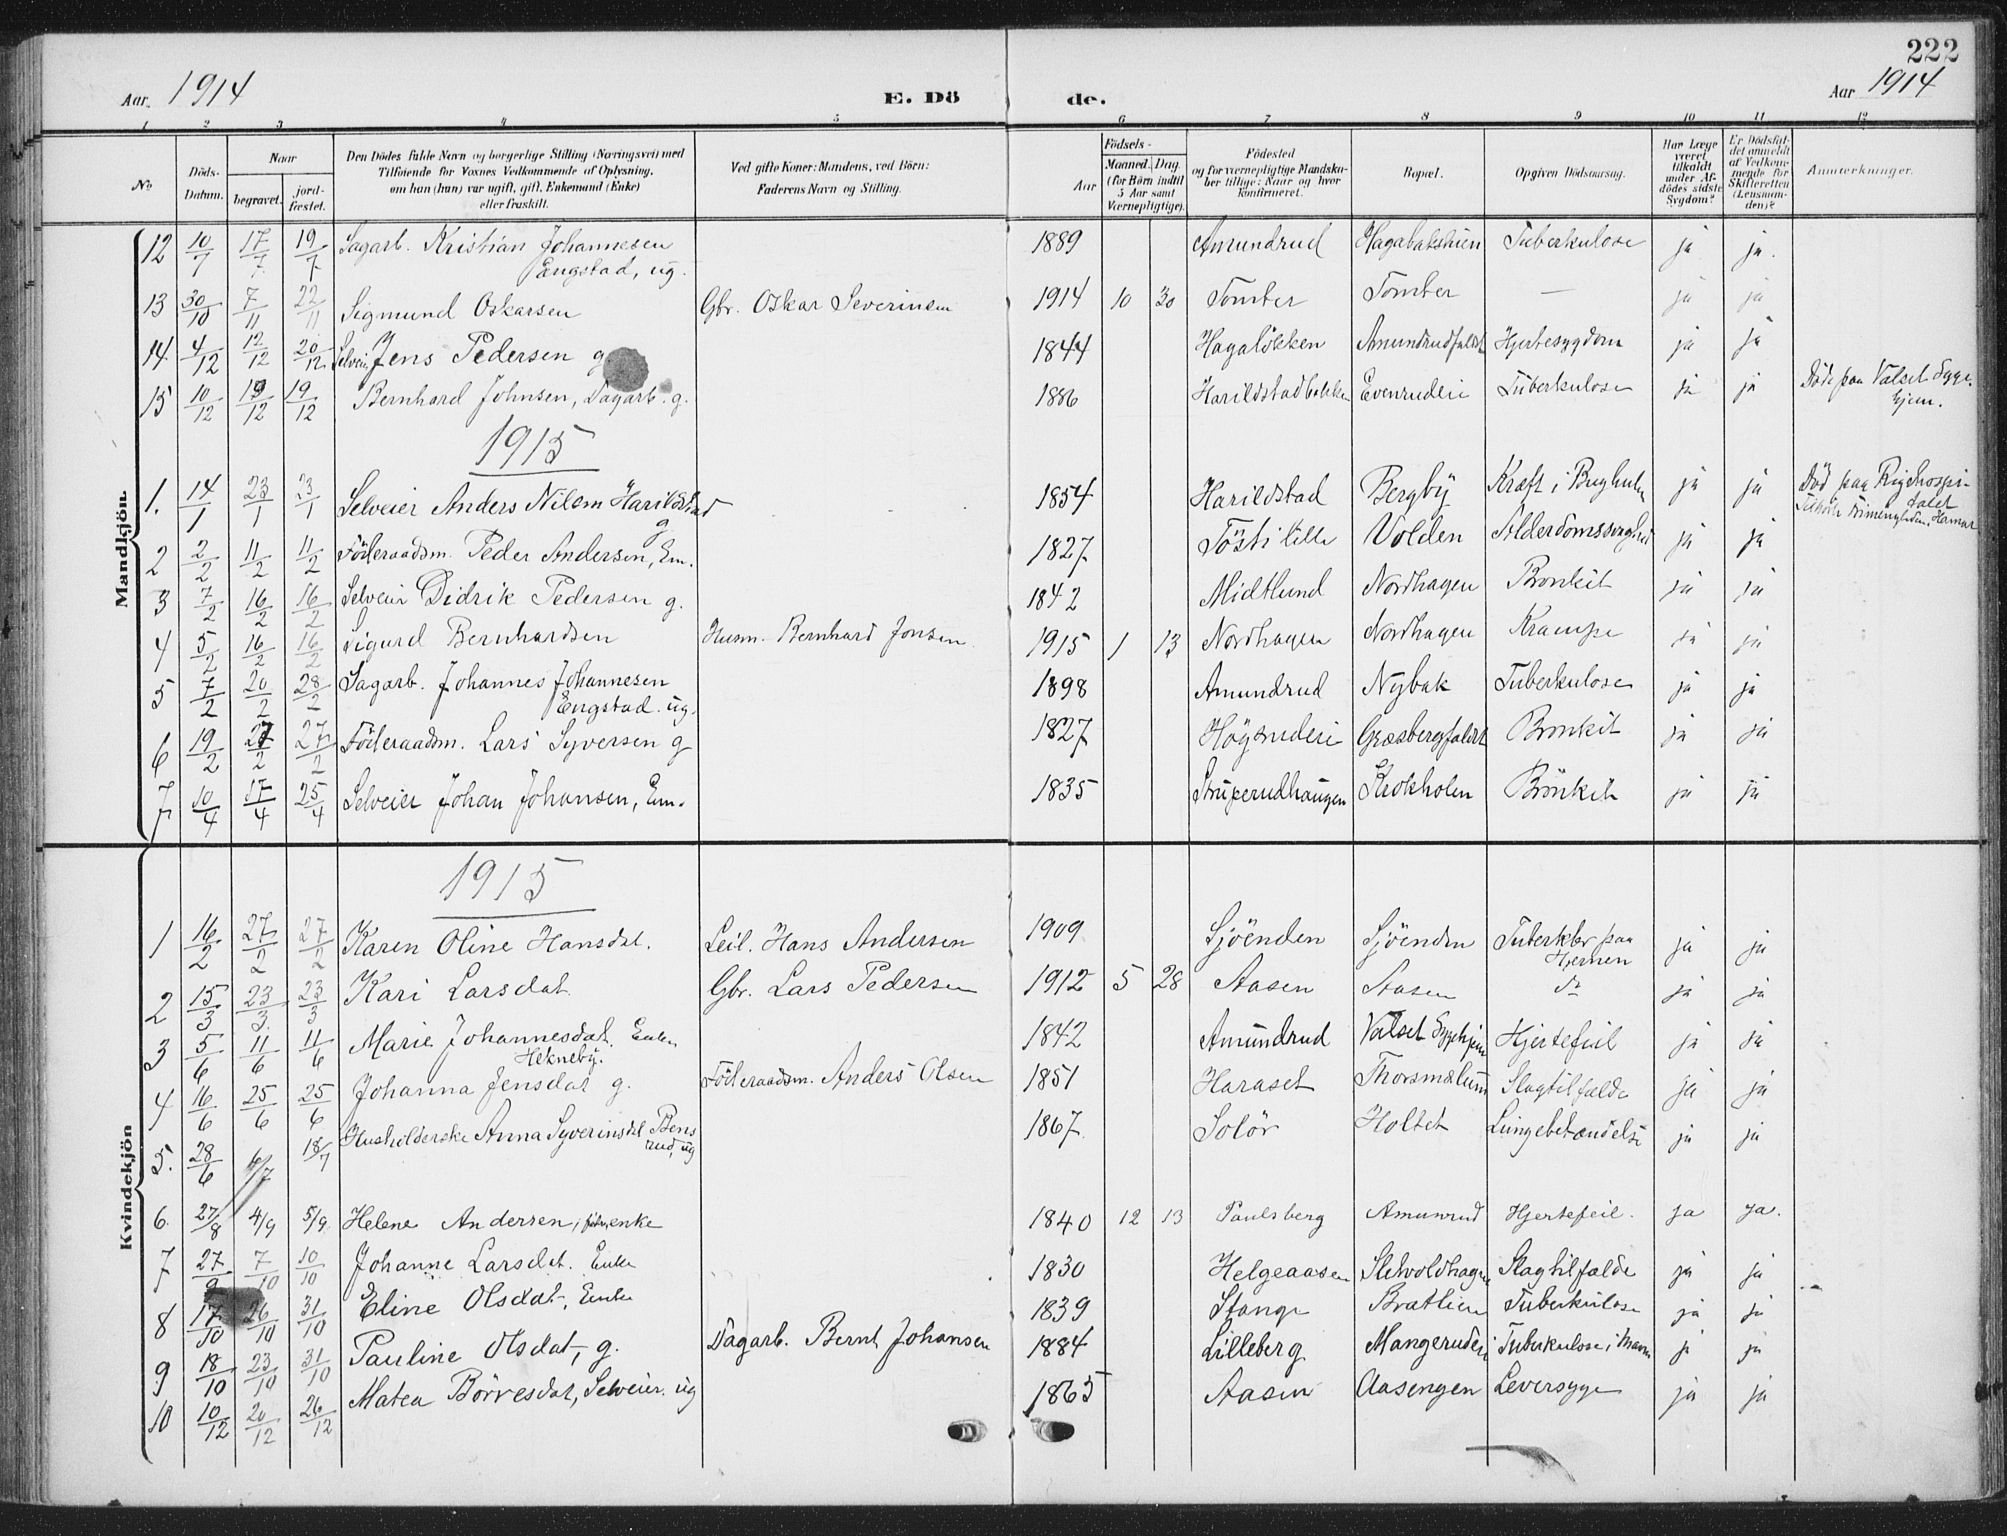 222
Aar 1914 E. Dö de. Aar 1914
1 2 3 4 5 6 7 8 9 10 11 12
No
Döds-Datum.
Naar
begravet.
jord-fæstet.
Den Dödes fulde Navn og borgerlige Stilling (Næringsvei) med
Tilföiende for Voxnes Vedkommende af Oplysning,
om han (hun) var ugift, gift, Enkemand (Enke)
eller fraskilt.
Ved gifte Koner: Mandens, ved Börn:
Faderens Navn og Stilling.
Födsels-
Aar
Maaned. Dag
(for Börn indtil
5 Aar samt
Værnepligtige).
Födested
og for værnepligtige Mandska-
ber tillige: Naar og hvor
konfirmeret.
Bopæl.
Opgiven Dödsaarsag.
Har Læge
været
tilkaldt
under Af-
dödes sidste
Sygdom?
Er Dödsfal-
det anmeldt
af Vedkom-
mende for
Skifteretten
(Lensman-
den)?
Anmærkninger.
Mandkjön.
12 10/7 17/7 19/7 Sagarb. Kristian Johannesen 1889 Amundrud Hagabakshien Tuberkulose ja ja.
Engstad, ug.
13 30/10 7/11 22/11 Sigmund Oskarsen Gbr. Oskar Severinsen 1914 10 30 Tomter Tomter — ja ja
14 4/12 12/12 20/12 Selveier Jens Pedersen g 1844 Hagalökken Amundrudfaldet Hjertesygdom ja ja
15 10/12 19/12 19/12 Bernhard Johnsen, Dagarb. g. 1886 Harildstadbakken Evenruderi Tuberkulose ja ja Döde paa Valset Syge-
hjem.
1915
1. 14/1 23/1 23/1 Selveier Anders Nilsen Harildstad 1854 Harildstad Bergby Kræft i Bughulen ja ja Död paa Rigshospi-
g talet
Hamar
2 2/2 11/2 11/2 Föderaadsm. Peder Andersen, Em. 1827 Töstitille Volden Alderdomssvaghed ja ja
3 7/2 16/2 16/2 Selveier Didrik Pedersen g. 1842 Midtlund Nordhagen Bronkit ja ja
4 5/2 16/2 16/2 Sigurd Bernhardsen Husm. Bernhard Jonsen. 1915 1 13 Nordhagen Nordhagen Krampe ja ja
5 7/2 20/2 28/2 Sagarb. Johannes Johannesen 1898 Amundrud Nybak Tuberkulose ja ja
Engstad. ug.
6 19/2 27/2 27/2 Föderaadsm. Lars Syversen g 1827 Högsruderi Græsbergfaldet Bronkit ja ja
7 10/4 17/4 25/4 Selveier Johan Johansen, Em. 1835 Struperudhaugen Krokholen Brönkit ja ja
Kvindekjön
1915
1 16/2 27/2 27/2 Karen Oline Hansdat. Leil. Hans Andersen 1909 Sjöenden Sjöenden Tuberkler paa ja ja
Hjernen
2 15/3 23/3. 23/3 Kari Larsdat. Gbr. Lars Pedersen 1912 5 28 Aasen Aasen do ja ja
3 5/6 11/6 11/6 Marie Johannesdat. Enke 1842 Amundrud Valset Sygehjem Hjertefeil ja ja
Hekneby.
4 16/6 25/6 25/6 Johanna Jensdat g. Föderaadsm. Anders Olsen 1851 Haraset Thorsmælum Slagtilfælde ja ja
5. 28/6 6/7 18/7 Husholderske Anna Syverinsdtl Bens 1867. Solör Holtet Lungebetændelse ja ja
rud, ug
6. 27/8 4/9 5/9. Helene Andersen, enke 1840 12 13 Paulsberg Amunrud Hjertefeil. ja ja.
7 27/9 7/10 10/10 Johanne Larsdat. Enke 1830 Helgeaasen Sletvoldhagen Slagtilfælde ja ja
8 17/10 26/10 31/10 Eline Olsdat, Enke 1839 Stange Bratlien Tuberkulose ja ja
9 18/10 23/10 31/10 Pauline Olsdat, g. Dagarb. Bernt Johansen 1884 Lilleberg Mangeruderi Tuberkulose i Maven ja ja
10 10/12 20/12 26/12 Matea Börresdat, Selveier. ug 1865 Aasen Aasengen Leversyge ja ja